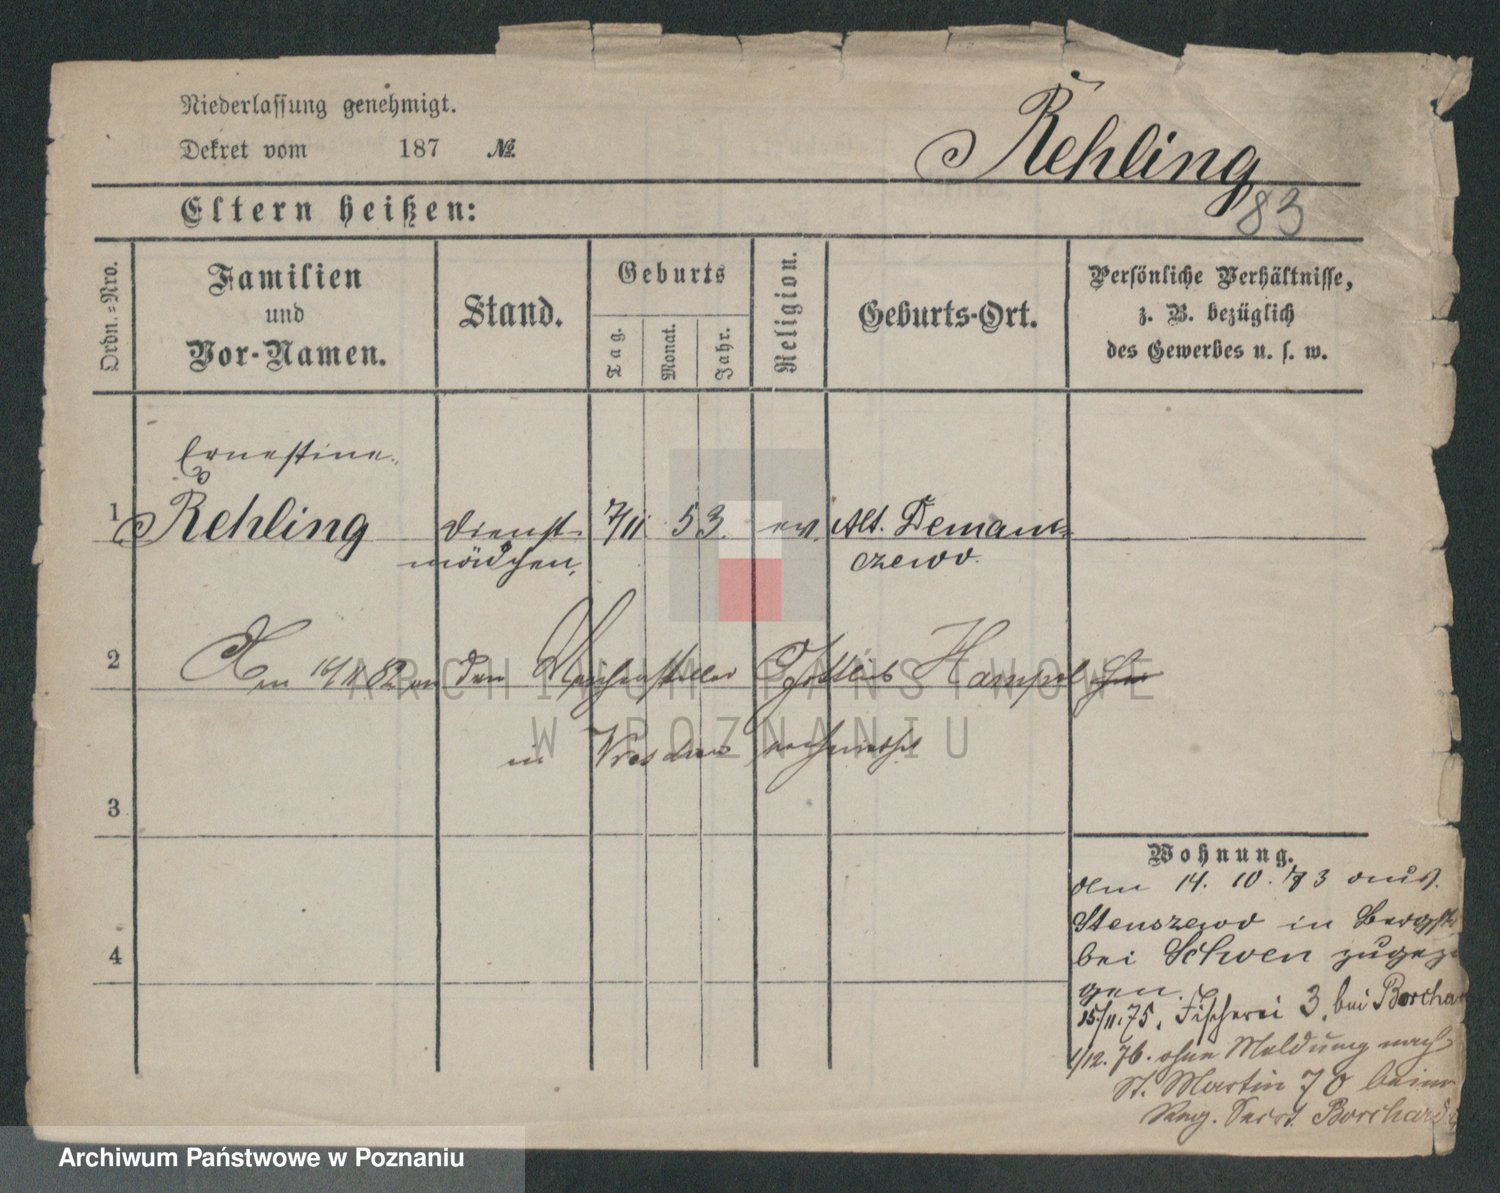 Niederlassung genehmigt.
Dekret vom 187 №
Rehling
83
Eltern heißen:
Ordn.=Nro.
Familien
und
Vor-Namen.
Stand.
Geburts
Tag.
Monat.
Jahr.
Religion.
Geburts-Ort.
Persönliche Verhältnisse,
z. B. bezüglich
des Gewerbes u. s. w.
Ernestine
1 Rehling Dienst- 7/11 53. ev. Alt. Demanc-
mädchen, czewo.
2 den Gottlieb Hampel
in verheirathet
3
4
Wohnung.
Am 14. 10. 73 aus
Stenszewo in Bergstr
bei Schoen zugezo
gen.
15/11. 75. Fischerei 3. bei Borchar
1/12. 76. ohne Meldung nach
St. Martin 70 beim
Borchard
ARCHIWUM PAŃSTWOWE
W POZNANIU
Archiwum Państwowe w Poznaniu